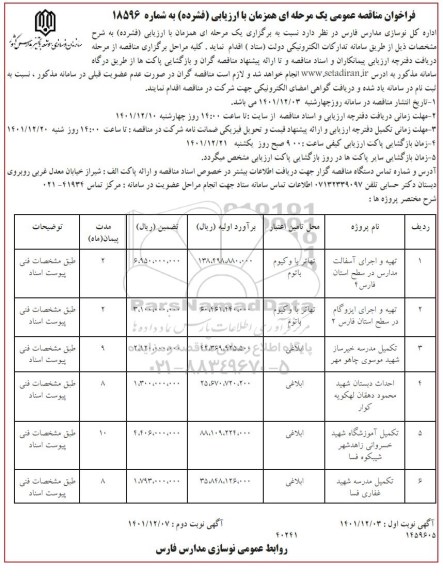 فراخوان مناقصه عمومی یک مرحله ای همزمان با ارزیابی (فشرده) به شماره ۱۸۵۹۶
اداره کل نوسازی مدارس فارس در نظر دارد نسبت به برگزاری یک مرحله ای همزمان با ارزیابی (فشرده) به شرح
مشخصات ذیل از طریق سامانه تدارکات الکترونیکی دولت (ستاد) اقدام نماید. کلیه مراحل برگزاری مناقصه از مرحله
دریافت دفترچه ارزیابی پیمانکاران و اسناد مناقصه و تا ارائه پیشنهاد مناقصه گران و بازگشایی پاکت ها از طریق درگاه
سامانه مذکور به ادرس www.setadiran.ir انجام خواهد شد و لازم است مناقصه گران در صورت عدم عضویت قبلی در سامانه مذکور، نسبت به
ثبت نام در سامانه یاد شده و دریافت گواهی امضای الکترونیکی جهت شرکت در مناقصه اقدام نمایند.
۱-تاریخ انتشار مناقصه در سامانه روزچهارشنبه ۱۴۰۱/۱۲/۰۳ می باشد.
۲-مهلت زمانی دریافت دفترچه ارزیابی و اسناد مناقصه از سایت :تا ساعت ۱۴:۰۰ روز چهارشنبه ۱۴۰۱/۱۲/۱۰
۳-مهلت زمانی تکمیل دفترچه ارزیابی و ارائه پیشنهاد قیمت و تحویل فیزیکی ضمانت نامه شرکت در مناقصه : تا ساعت ۱۴:۰۰ روز شنبه ۱۴۰۱/۱۲/۲۰
۴-زمان بازگشایی پاکت ارزیابی کیفی ساعت :۹:۰۰ صبح روز یکشنبه ۱۴۰۱/۱۲/۲۱
۵-زمان بازگشایی سایر پاکت ها در روز بازگشایی پاکت ارزیابی مشخص میگردد.
آدرس و شماره تماس دستگاه مناقصه گزار جهت دریافت اطلاعات بیشتر در خصوص اسناد مناقصه و ارائه پاکت الف : شیراز خیابان معدل غربی روبروی
دبستان دکتر حسابی تلفن ۰۷۱۳۲۳۳۹۰۹۷ اطلاعات تماس سامانه ستاد جهت انجام مراحل عضویت در سامانه : مرکز تماس ۴۱۹۳۴-۰۲۱
شرح مختصر پروژه ها :
ردیف نام پروژه محل تامین اعتبار برآورد اولیه (ریال) تضمین (ریال) مدت پیمان(ماه) توضیحات
۱ تهیه و اجرای آسفالت مدارس در سطح استان فارس۲ تهاتر با وکیوم باتوم ۱۳۸،۴۹۸،۸۸۰،۰۰۰ ۶،۹۵۰،۰۰۰،۰۰۰ ۲ طبق مشخصات فنی پیوست اسناد
۲ تهیه و اجرای ایزوگام در سطح استان فارس ۲ تهاتر با وکیوم باتوم ۳،۱۰۰،۰۰۰،۰۰۰ ۲ طبق مشخصات فنی پیوست اسناد
۳ تکمیل مدرسه خیرساز شهید موسوی چاهو مهر ابلاغی ۹ طبق مشخصات فنی پیوست اسناد
۴ احداث دبستان شهید محمود دهقان لهکویه کوار ابلاغی ۲۵،۶۷۰،۷۲۰،۲۰۰ ۱،۳۰۰،۰۰۰،۰۰۰ ۸ طبق مشخصات فنی پیوست اسناد
۵ تکمیل آموزشگاه شهید خسروانی زاهدشهر شیبکوه فسا ابلاغی ۸۸،۱۰۹،۲۲۴،۰۰۰ ۴،۴۰۶،۰۰۰،۰۰۰ ۱۰ طبق مشخصات فنی پیوست اسناد
۶ تکمیل مدرسه شهید غفاری فسا ابلاغی ۳۵،۸۴۸،۱۲۶،۰۰۰ ۱،۷۹۳،۰۰۰،۰۰۰ ۸ طبق مشخصات فنی پیوست اسناد
۰۲۱-۸۸۳۴۹۶۷۰-۵
آگهی نوبت اول : ۱۴۰۱/۱۲/۰۳ آگهی نوبت دوم : ۱۴۰۱/۱۲/۰۷
۱۴۵۹۶۰۵ ۴۰۲۴۱
روابط عمومی نوسازی مدارس فارس